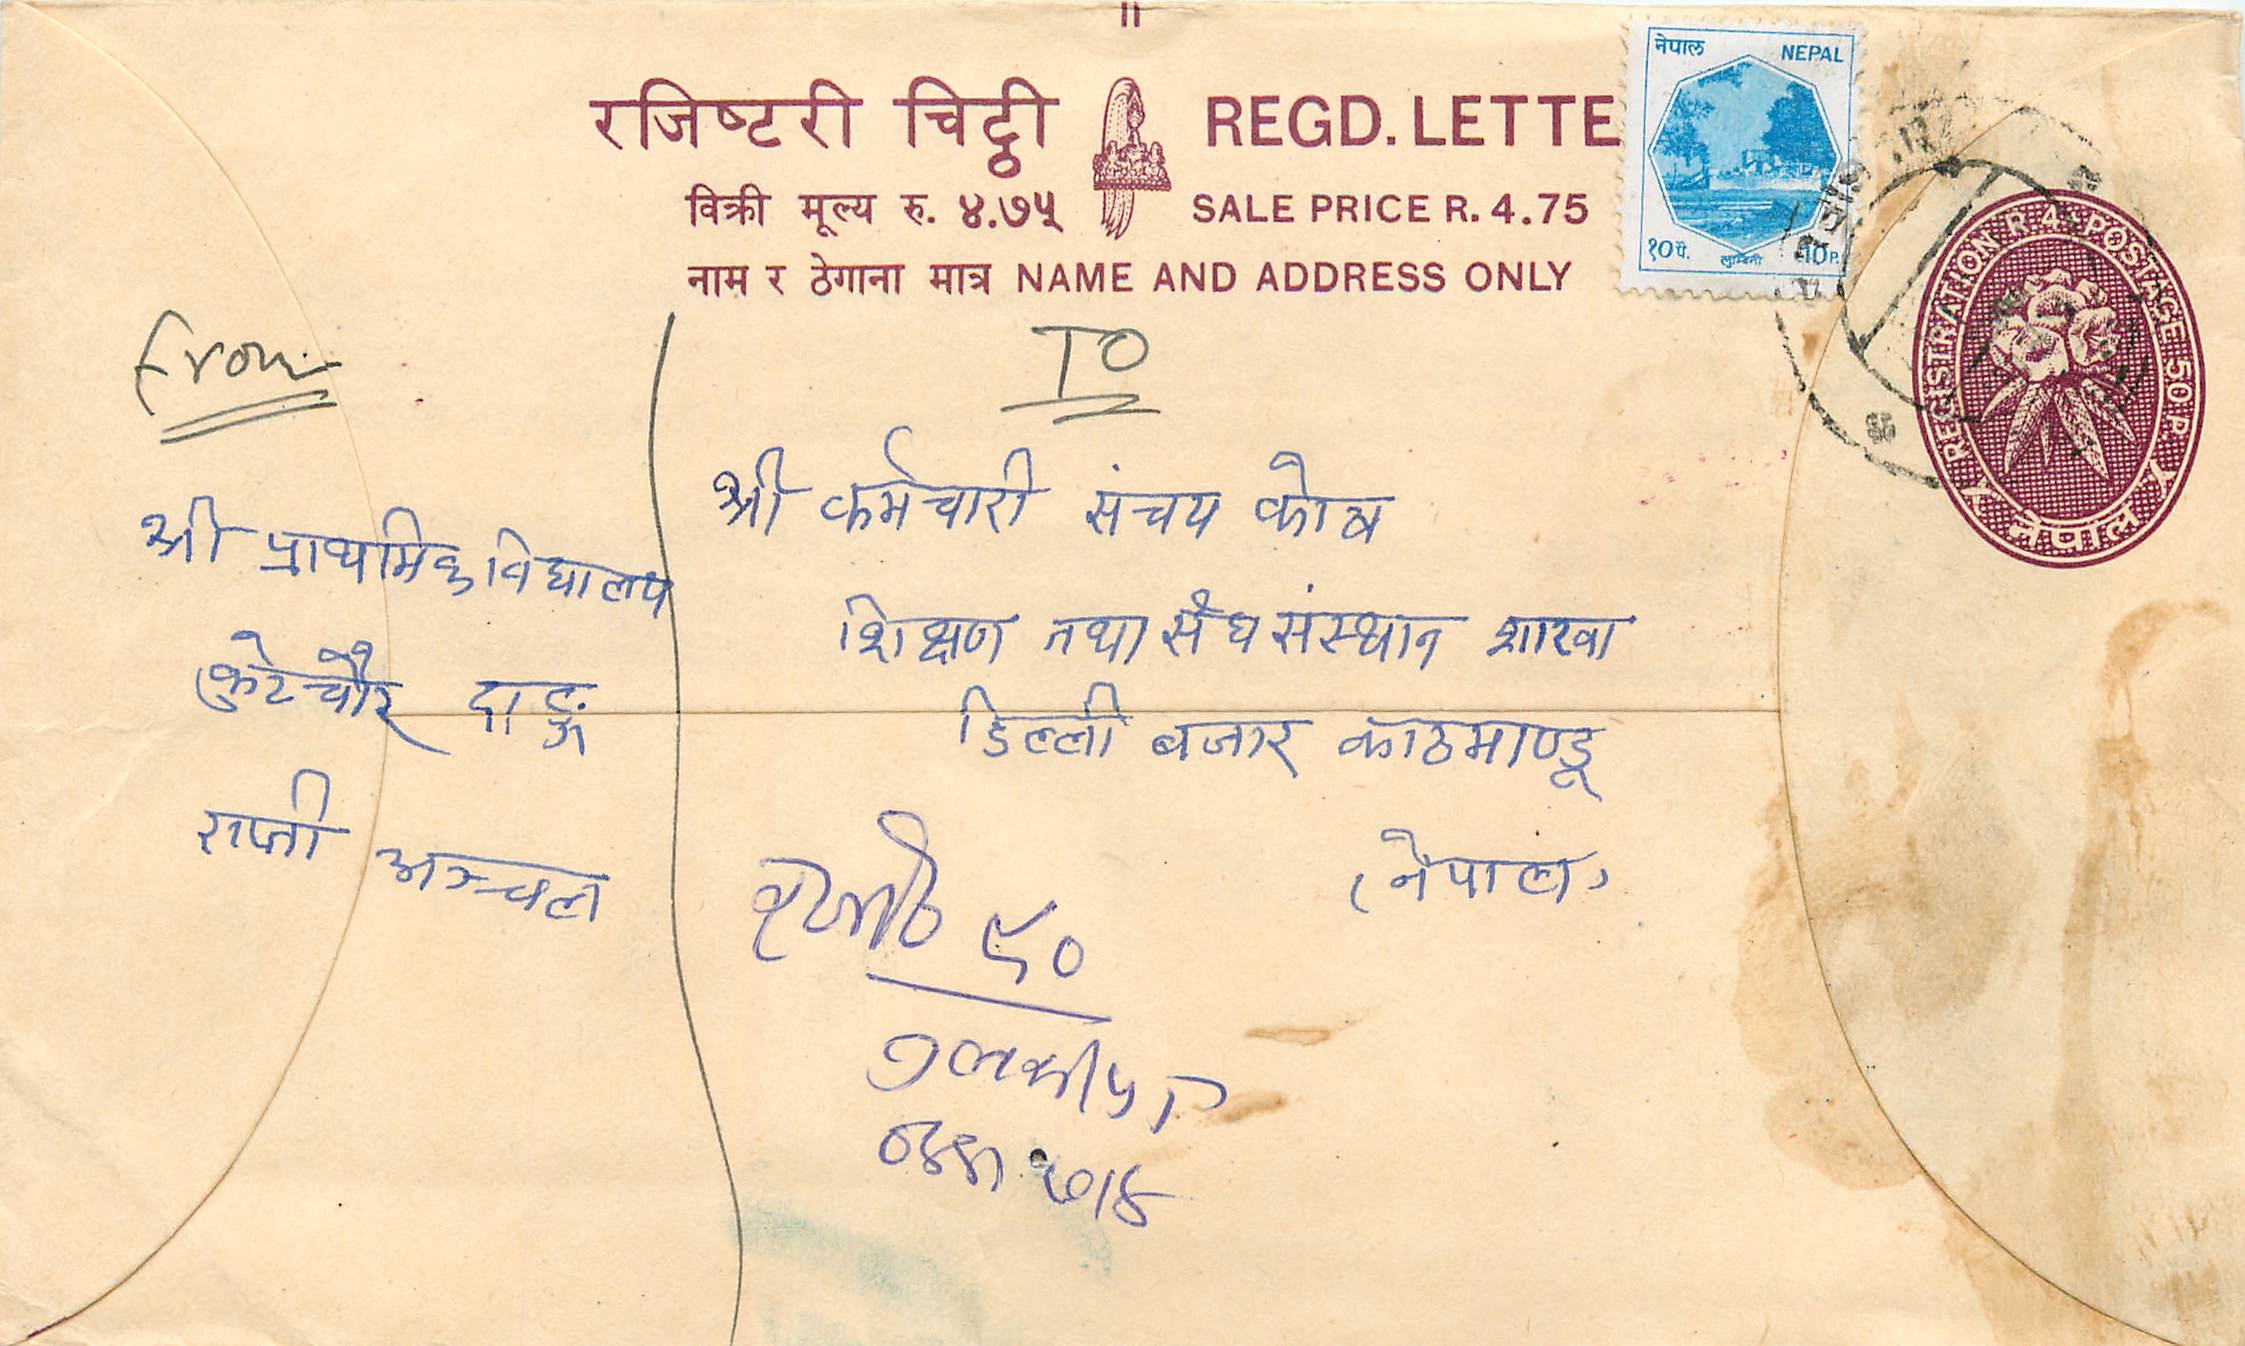 रजिष्टरी चिट्ठी REGD. LETTE
विक्री मूल्य रु. ४.७५ SALE PRICE R. 4.75
नाम र ठेगाना मात्र NAME AND ADDRESS ONLY
नेपाल NEPAL
१०पै. लुम्बिनी 10P.
REGISTRATION R 4 POSTAGE 50 P.
नेपाल
From
श्री प्राथमिक विद्यालय
दाङ्ग
राप्ती अञ्चल
TO
श्री कर्मचारी संचय कोष
शिक्षण तथा संघ संस्थान शाखा
डिल्ली बजार काठमाण्डू
(नेपाल)
९०